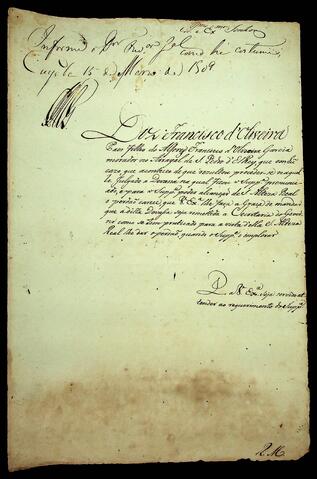 Illmo. e Exmo. Senhor
Informe o Dor. Juiz
como he costume,
Cuyabá 15 de Março de 1809
Diz Francisco d'Oliveira
Paes filho do Alferes Francisco d'Oliveira Garcia
morador no Arrayal de S. Pedro d'ElRey, que em hũ
cazo que aconteceo de que rezultou proceder-se naquel
le Julgado a Devassa na qual ficou o Suppe. pronuncia-
do, e para o Suppe. poder alcançar de S. Alteza Real
o perdão carece que V. Exa. lhe faça a Graça de mandar
que a ditta Devassa seja remettida a Secretaria do Gover-
no como se tem praticado para a vista della S. Alteza
Real lhe dar o perdão, quando o Suppe. o implorar
P. a V. Exa. seja servido at
tender ao requerimento do Suppe.
E. R. M.